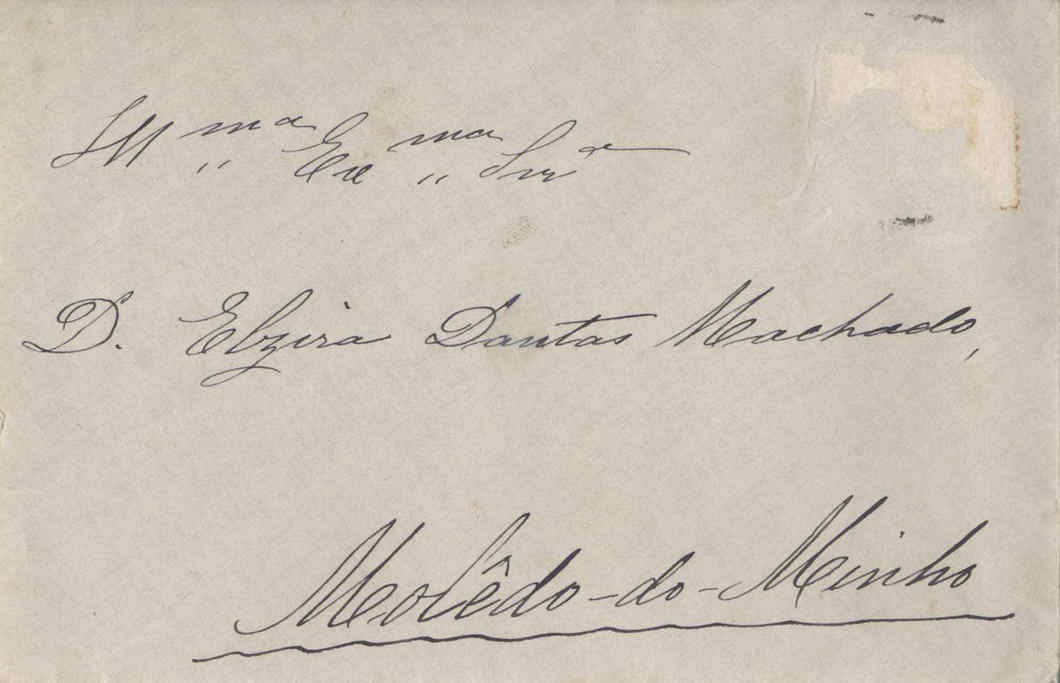 Ill.ma Ex.ma Snr.a
D. Elzira Dantas Machado,
Molêdo-do-Minho